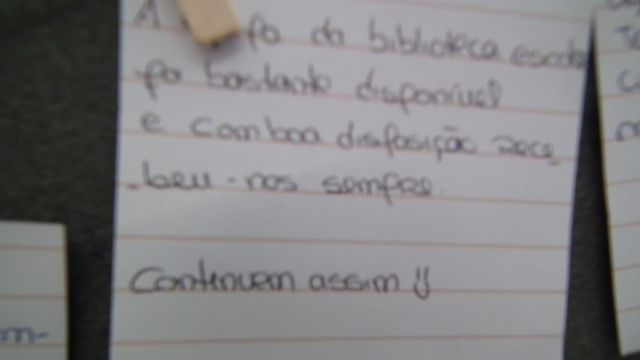 A pa da biblioteca
foi bastante disponível
e com boa disposição rece
-beu-nos sempre.
Continuem assim
m-